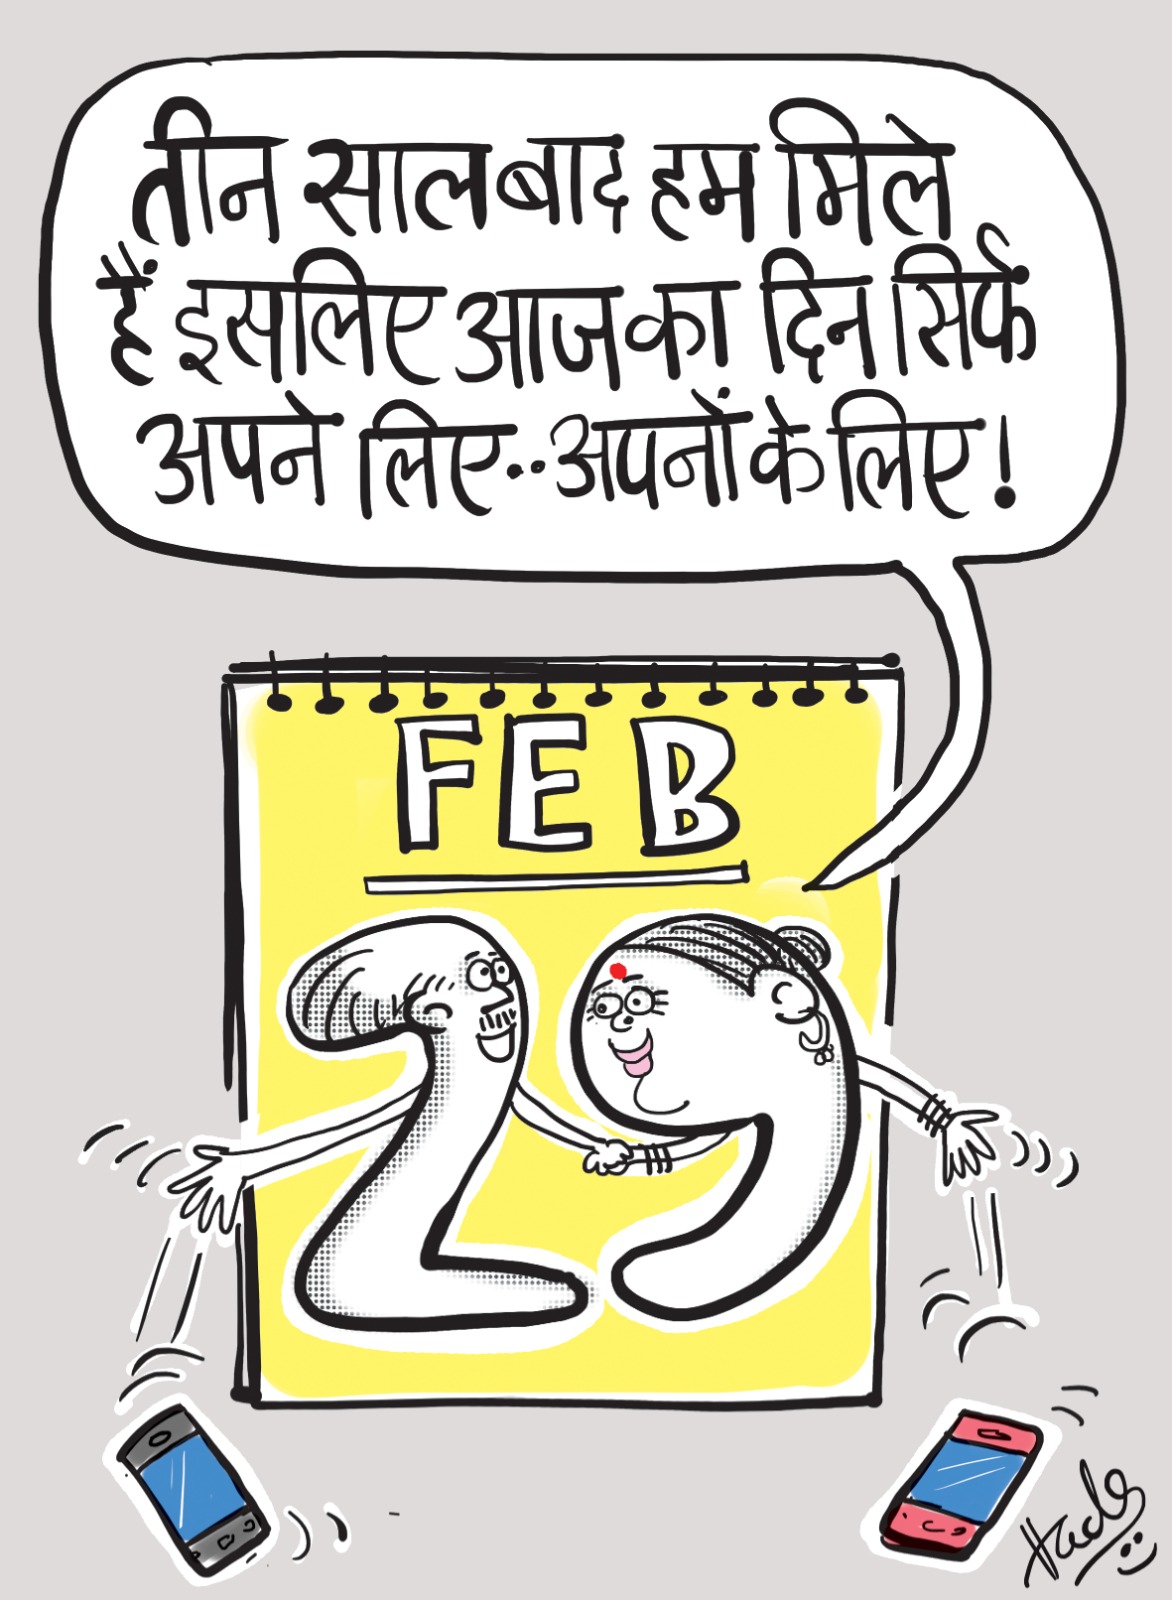 तीन साल बाद हम मिले
हैं इसलिए आज का दिन सिर्फ
अपने लिए.. अपनों के लिए!
FEB
29